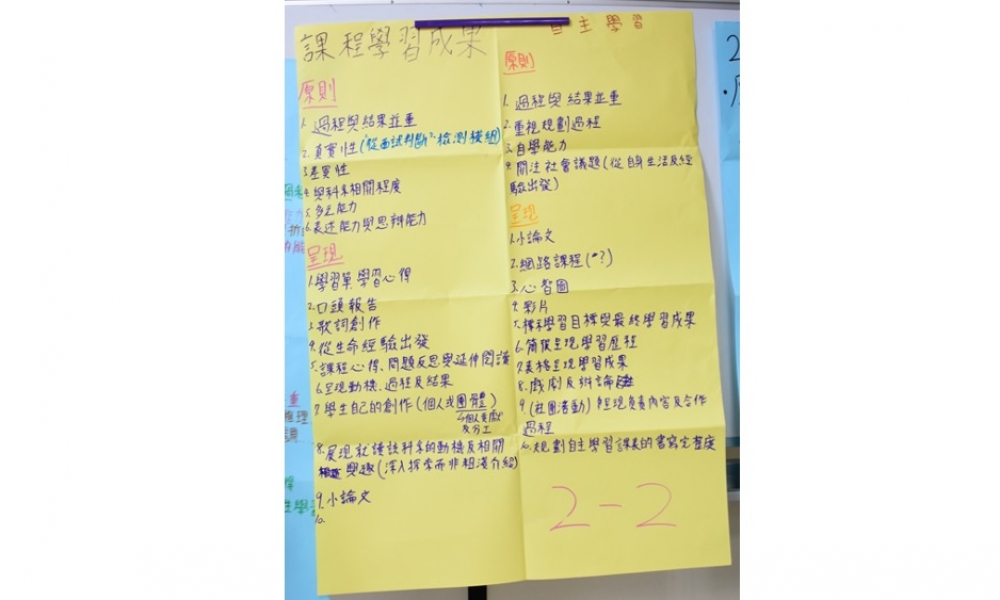 課程學習成果
原則
1. 過程與結果並重
2. 真實性(從面試判斷、檢測模組)
3. 差異性
4. 與科系相關程度
5. 多元能力
6. 表述能力與思辨能力
呈現
1. 學習單、學習心得
2. 口頭報告
3. 歌詞創作
4. 從生命經驗出發
5. 課程心得、問題反思與延伸閱讀
6. 呈現動機、過程及結果
7. 學生自己的創作(個人或團體)
個人貢獻
及分工
8. 展現就讀該科系的動機及相關
興趣(深入探索而非粗淺介紹)
9. 小論文
10.
自主學習
原則
1. 過程與結果並重
2. 重視規劃過程
3. 自學能力
4. 關注社會議題(從自身生活及經
驗出發)
呈現
1. 小論文
2. 網路課程(*?)
3. 心智圖
4. 影片
5. 標示學習目標與最終學習成果
6. 簡僕呈現學習歷程
7. 表格呈現學習成果
8. 戲劇及辯論
9. (社團活動)呈現負責內容及合作
過程
10. 規劃自主學習課表的書寫完整度
2-2